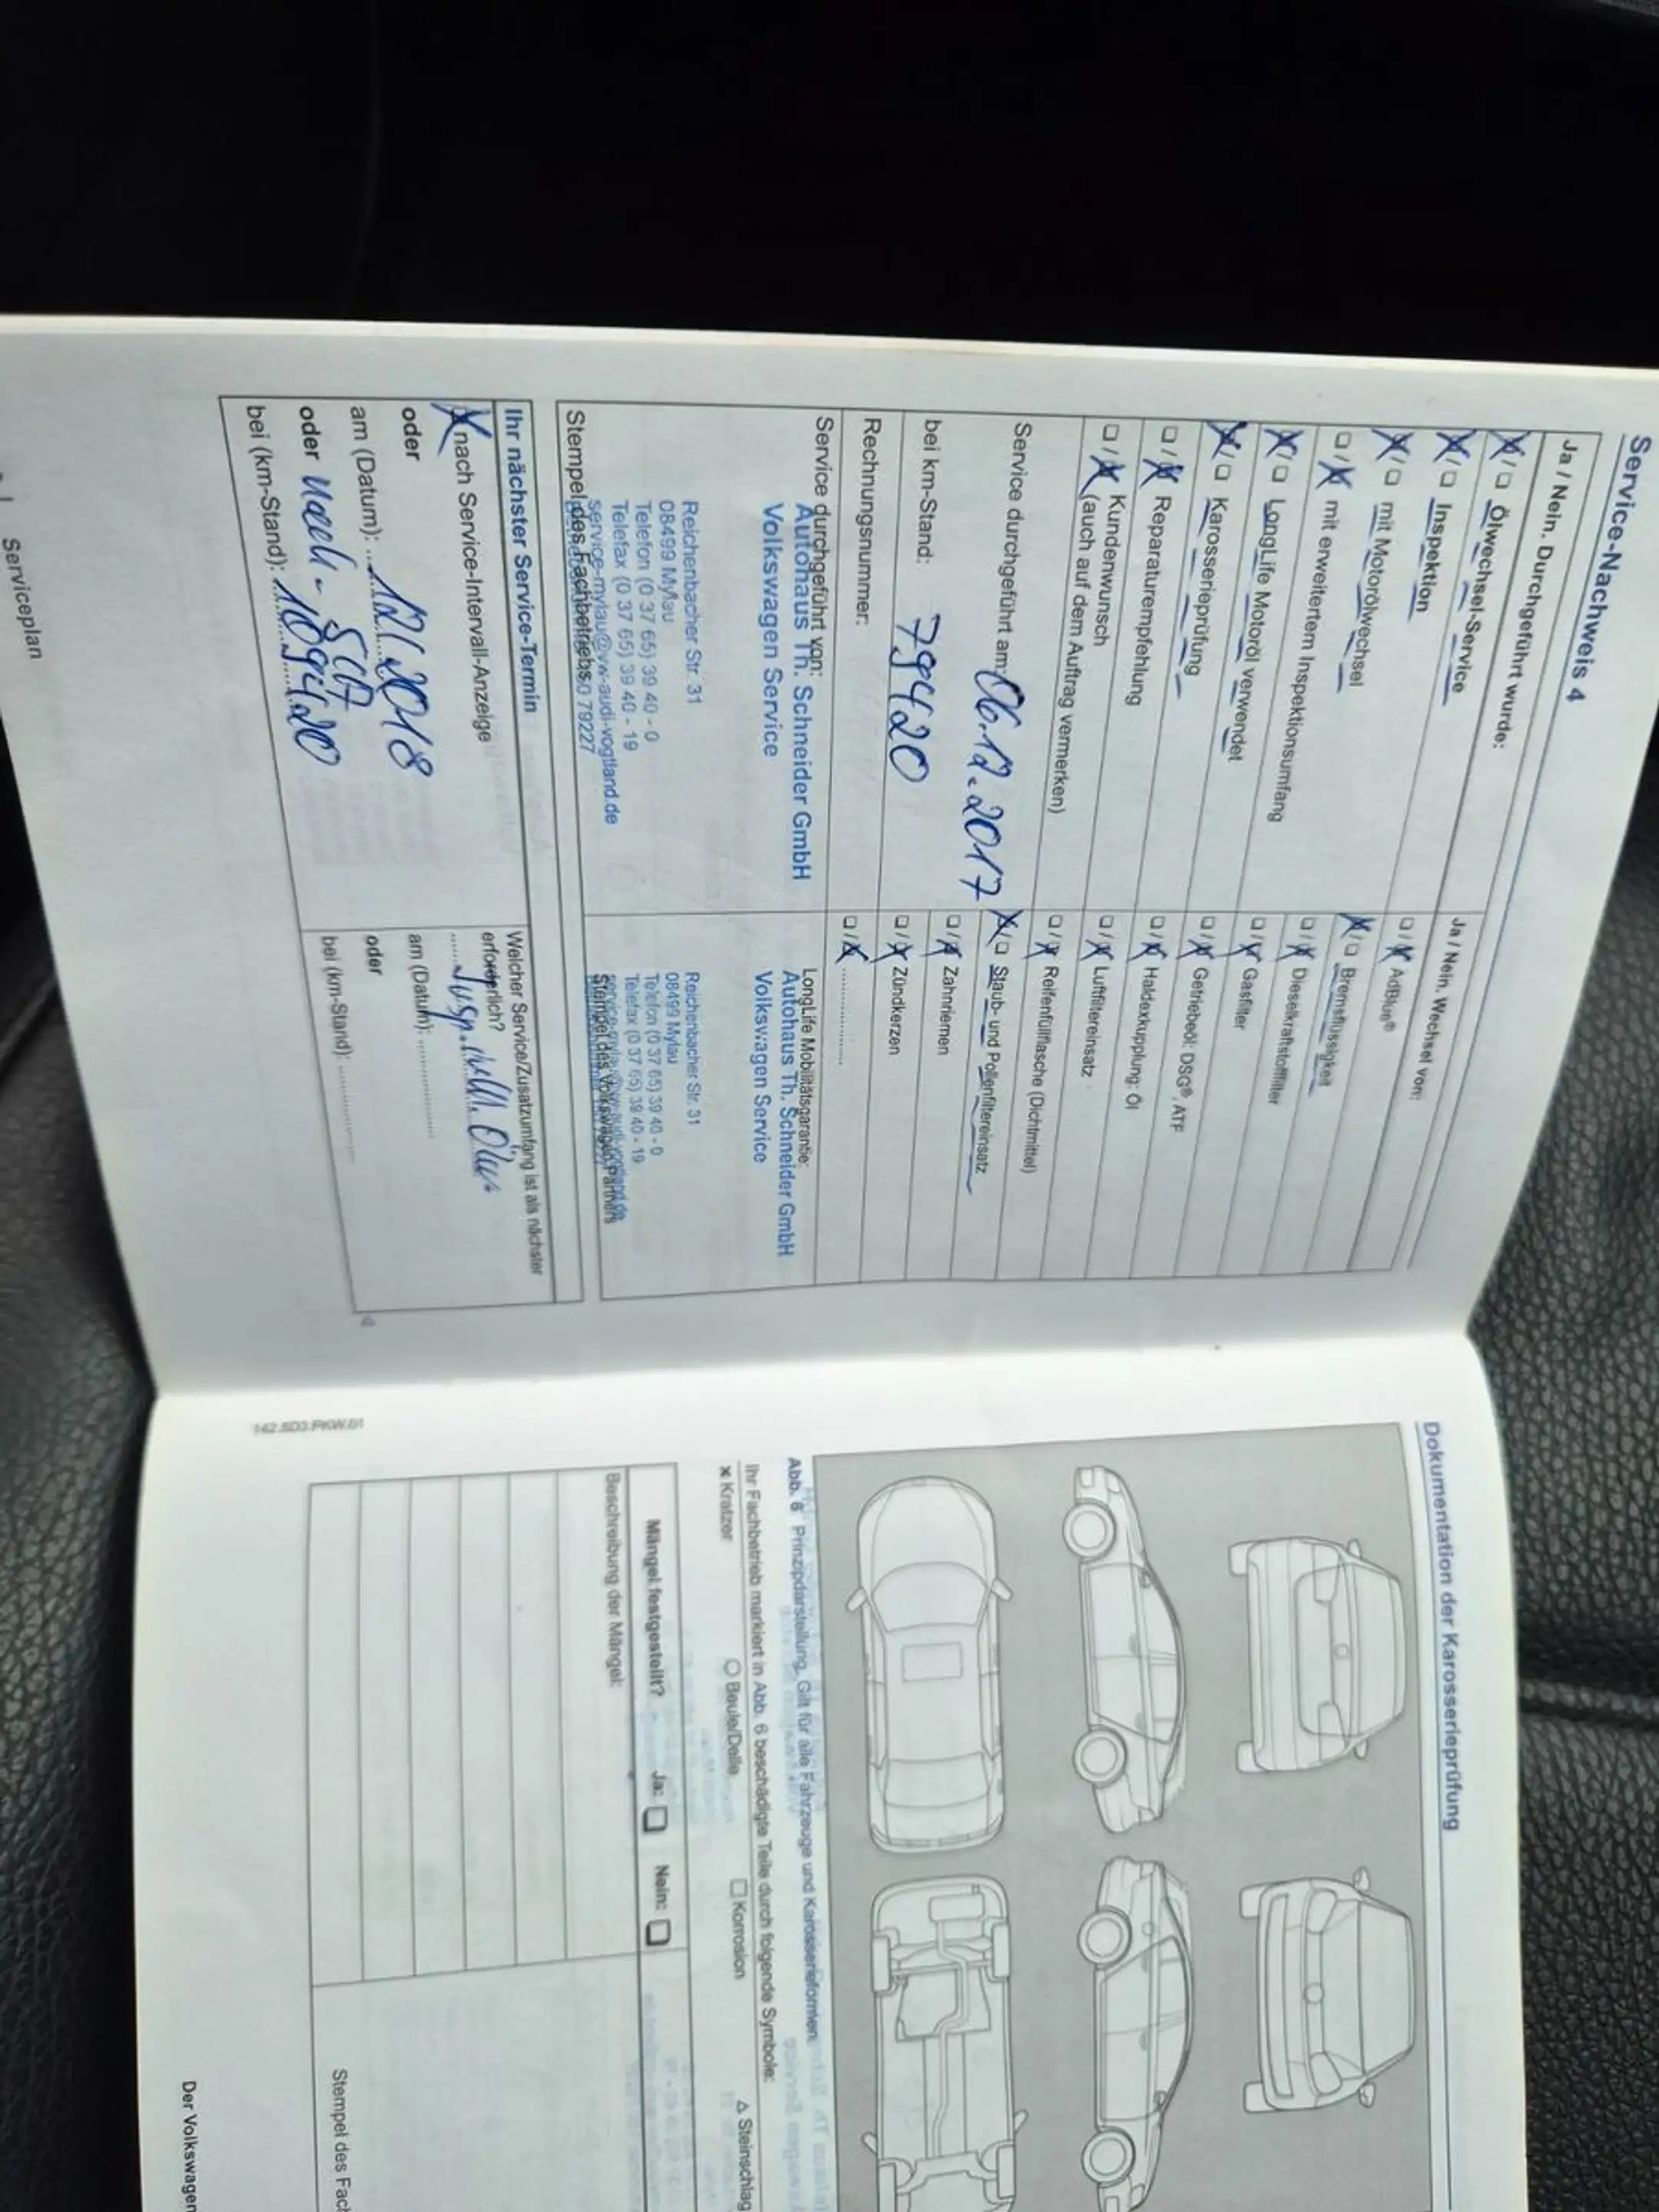 Service-Nachweis 4
Ja / Nein. Durchgeführt wurde:
X/☐ Ölwechsel-Service
X/☐ Inspektion
X/☐ mit Motorölwechsel
☐/X mit erweitertem Inspektionsumfang
X/☐ LongLife Motoröl verwendet
X/☐ Karosserieprüfung
☐/X Reparaturempfehlung
☐/X Kundenwunsch
(auch auf dem Auftrag vermerken)
Service durchgeführt am: 06.12.2017
bei km-Stand: 79420
Rechnungsnummer:
Service durchgeführt von:
Autohaus Th. Schneider GmbH
Volkswagen Service
Reichenbacher Str. 31
08499 Mylau
Telefon (0 37 65) 39 40 - 0
Telefax (0 37 65) 39 40 - 19
service-mylau@vw-audi-vogtland.de
Stempel des Fachbetriebs
Ja / Nein. Wechsel von:
☐/X AdBlue®
X/☐ Bremsflüssigkeit
☐/X Dieselkraftstofffilter
☐/X Gasfilter
☐/X Getriebeöl: DSG®, ATF
☐/X Haldexkupplung: Öl
☐/X Luftfiltereinsatz
☐/X Reifenfüllflasche (Dichtmittel)
X/☐ Staub- und Pollenfiltereinsatz
☐/X Zahnriemen
☐/X Zündkerzen
☐/X ..............
LongLife Mobilitätsgarantie:
Autohaus Th. Schneider GmbH
Volkswagen Service
Reichenbacher Str. 31
08499 Mylau
Telefon (0 37 65) 39 40 - 0
Telefax (0 37 65) 39 40 - 19
Stempel des Volkswagen Partners
Ihr nächster Service-Termin
X nach Service-Intervall-Anzeige
oder
am (Datum): 12/2018
oder nach
bei (km-Stand): 109420
Welcher Service/Zusatzumfang ist als nächster
erforderlich?
Insp.
am (Datum): ..............
oder
bei (km-Stand): ..............
Serviceplan
Dokumentation der Karosserieprüfung
Abb. 6 Prinzipdarstellung. Gilt für alle Fahrzeuge und Karosserieformen.
Ihr Fachbetrieb markiert in Abb. 6 beschädigte Teile durch folgende Symbole:
× Kratzer ○ Beule/Delle □ Korrosion △ Steinschlag
Mängel festgestellt? Ja: ☐ Nein: ☐
Beschreibung der Mängel:
Stempel des Fac
142.5D3.PKW.01
Der Volkswagen